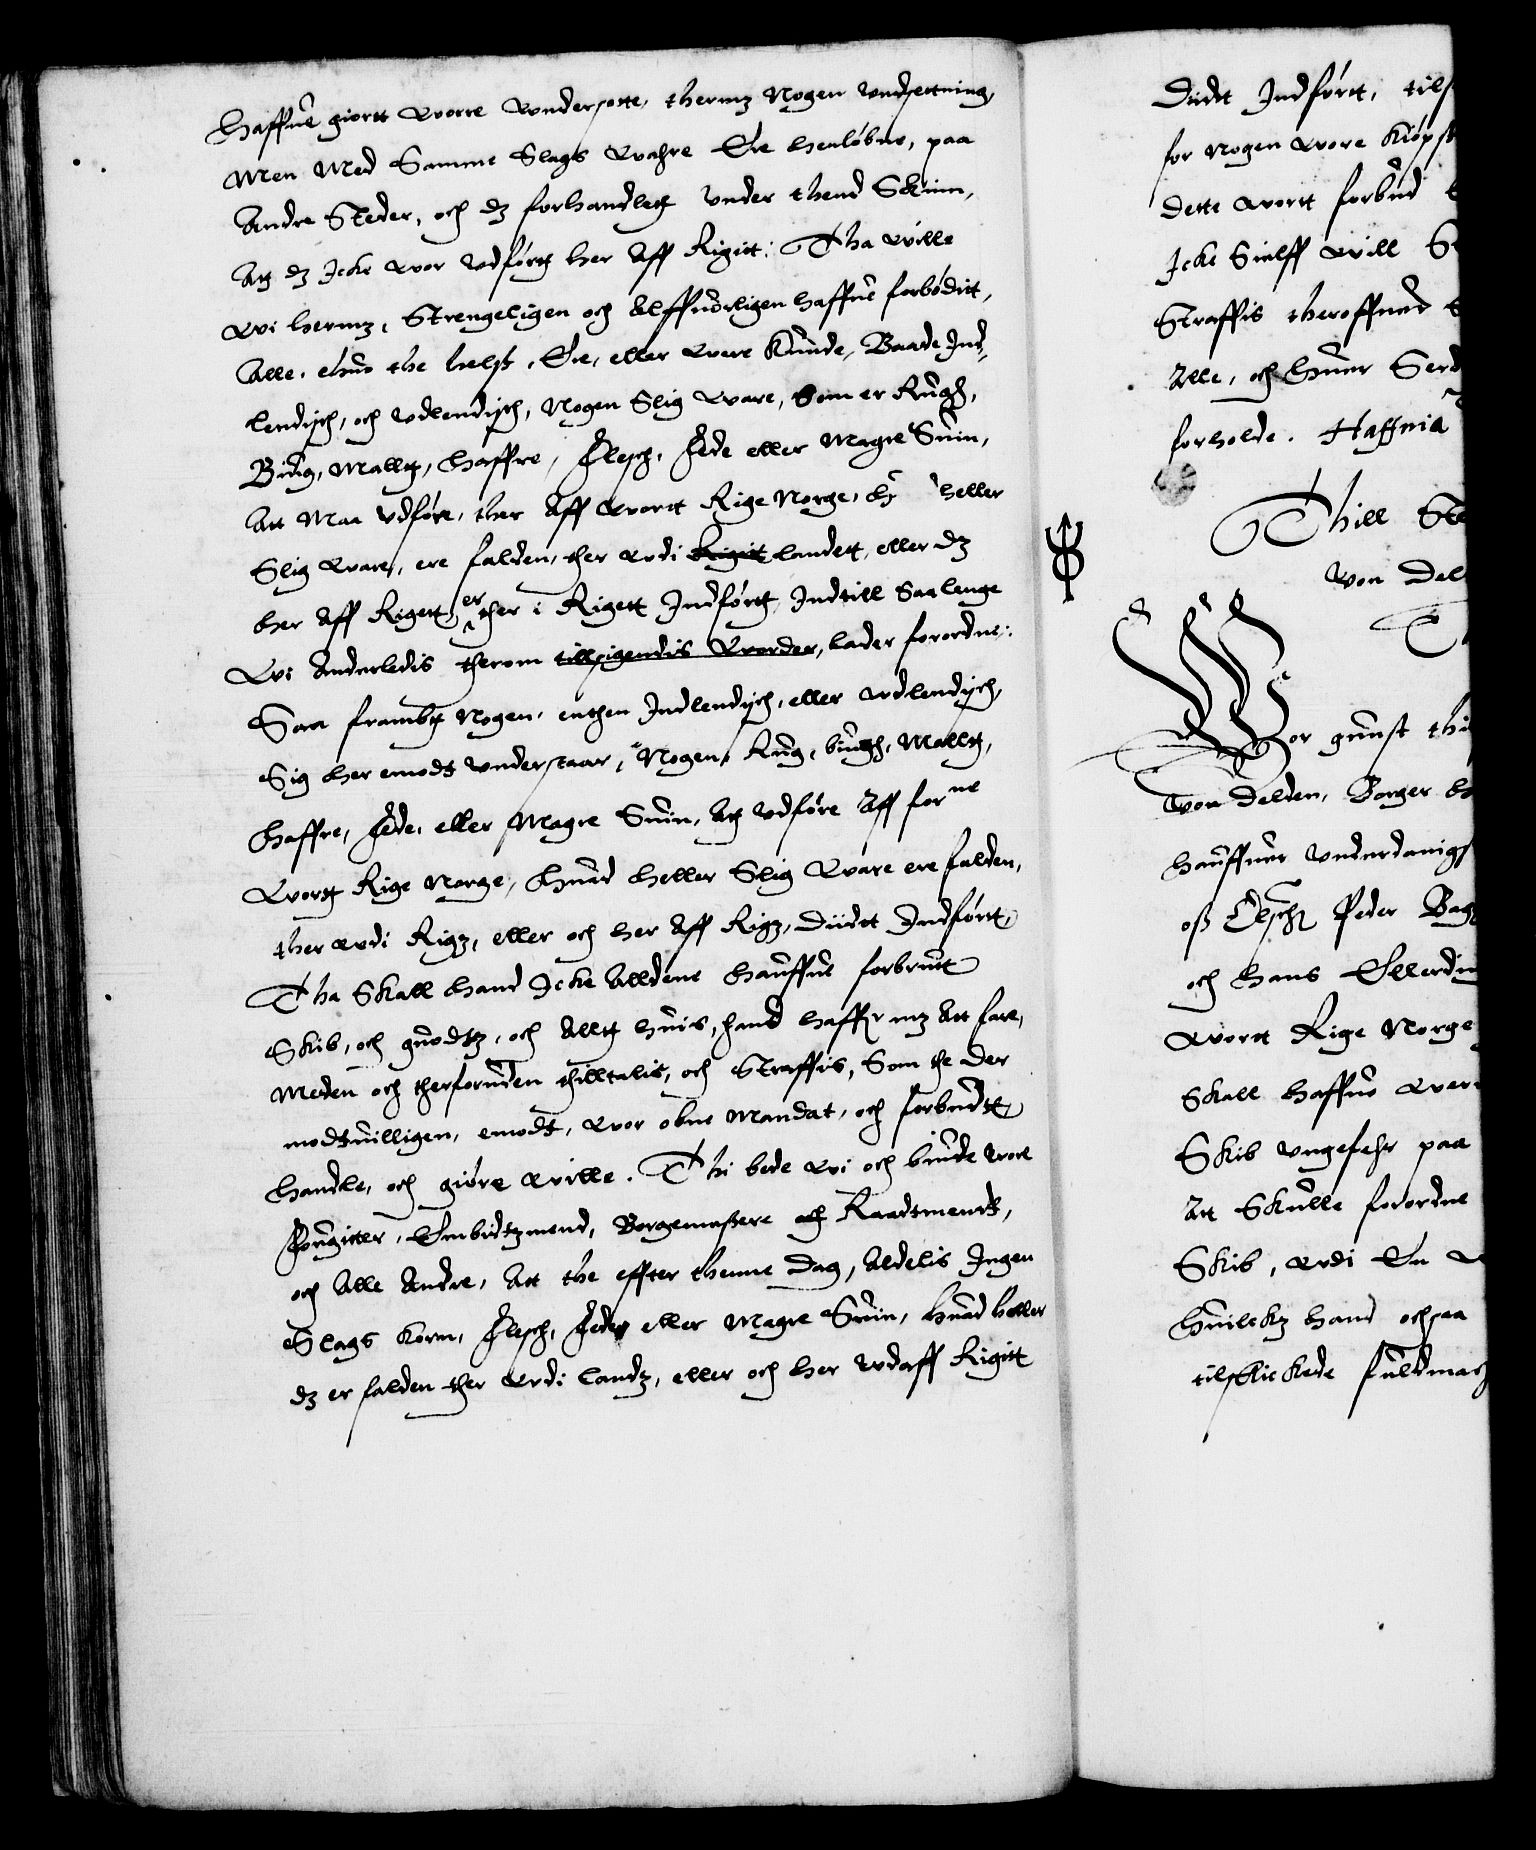 Haffue giortt vorre Vndersotte, thermz Nogen vndsettning,
Men Med Samme Slags Vahre Ere henløbne, paa
Andre Steder, och dz forhandlett Vnder thend Skinn,
Att dz Icke vor vdførtt her Aff Rigitt: Tha ville
vi hermz, Strengeligen och Alffuorligen haffue forbødit,
Alle, ehuo the helst, Ere, eller Vere Kunde, Baade Ind¬
lendisch, och Vdlendisch, Nogen Slig Vare, Som er Rugh,
Biug, Mallt, Haffre, Flesch, Fede eller Magre Suin,
Att Maa Vdføre, ther Aff vortt Rige Norge, heller
Slig Vare, ere falden, ther vdi Rigitt Landett, eller dz
her Aff Rigett, er ther i Rigett Indførtt, Indtill Saa lenge
Vi Anderledis therom tillsigendis Vorder, lader forordne:
Saa frambt Nogen, enthen Indlendisch, eller vdlendisch,
Sig her emodt vnderstaar, Nogen Rug, biugh, Mallt,
Haffre, Fede, eller Magre Suin, Att vdføre Aff forne
Vortt Rige Norge, Huad heller Slig Vare ere falden,
ther vdi Rigz, eller och her Aff Rigz, Diidt Indførtt,
Tha Skall hand Icke Alldene hauffue forbrutt
Skib, och guodtz, och Alltt huis, hand haffr mz Att fare,
Meden och therforuden thilltalis, och Straffis, Som the der
modtuilligen, emodt, vor obne Mandat, och forbudtt
Handle, och giøre ville. Thi bede vi och biude vore
Fougitter, Embidtzmend, Borgemestere och Raadtmend,
och Alle Andre, Att the effter thenne Dag, Aldelis Ingen
Slags Korn, Flesch, Fede eller Magre Suin, huad heller
dz er falden ther vdi Landz, eller och her vdaff Rigitt
Diidt Indførtt,
for Nogen vore Kiøpst
dette vortt forbud
Icke Sielff vill
Straffis theroffuer
Alle, och huer
forholde. Haffnia
Thill
von Del
Vor gunst
von Delden, Borger
hauffuer vnderdanigst
oss Elsche Peder Bag
och hans
vortt Rige Norge
Skall haffue
Skib vngefehr paa
At Skulle forordne
Skib, vdi En
huilckz hand ochsaa
tilschickede fuldmac